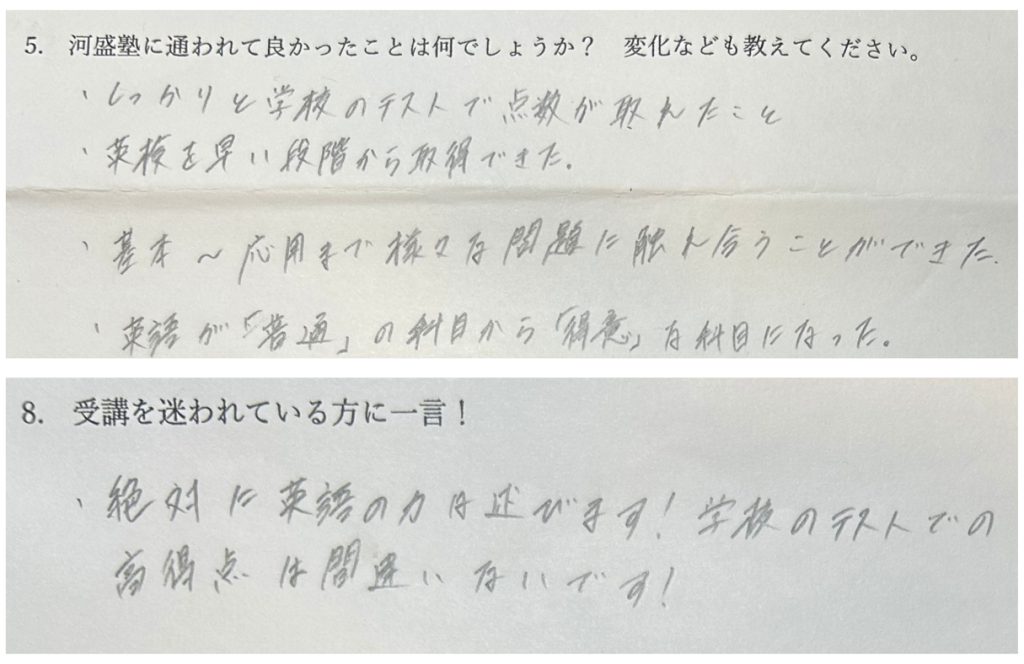 5. 河盛塾に通われて良かったことは何でしょうか？ 変化なども教えてください。
・しっかりと学校のテストで点数が取れたこと
・英検を早い段階から取得できた。
・基本〜応用まで様々な問題に触れ合うことができた。
・英語が「普通」の科目から「得意」な科目になった。
8. 受講を迷われている方に一言！
・絶対に英語の力は述びます！学校のテストでの
高得点は間違いないです！